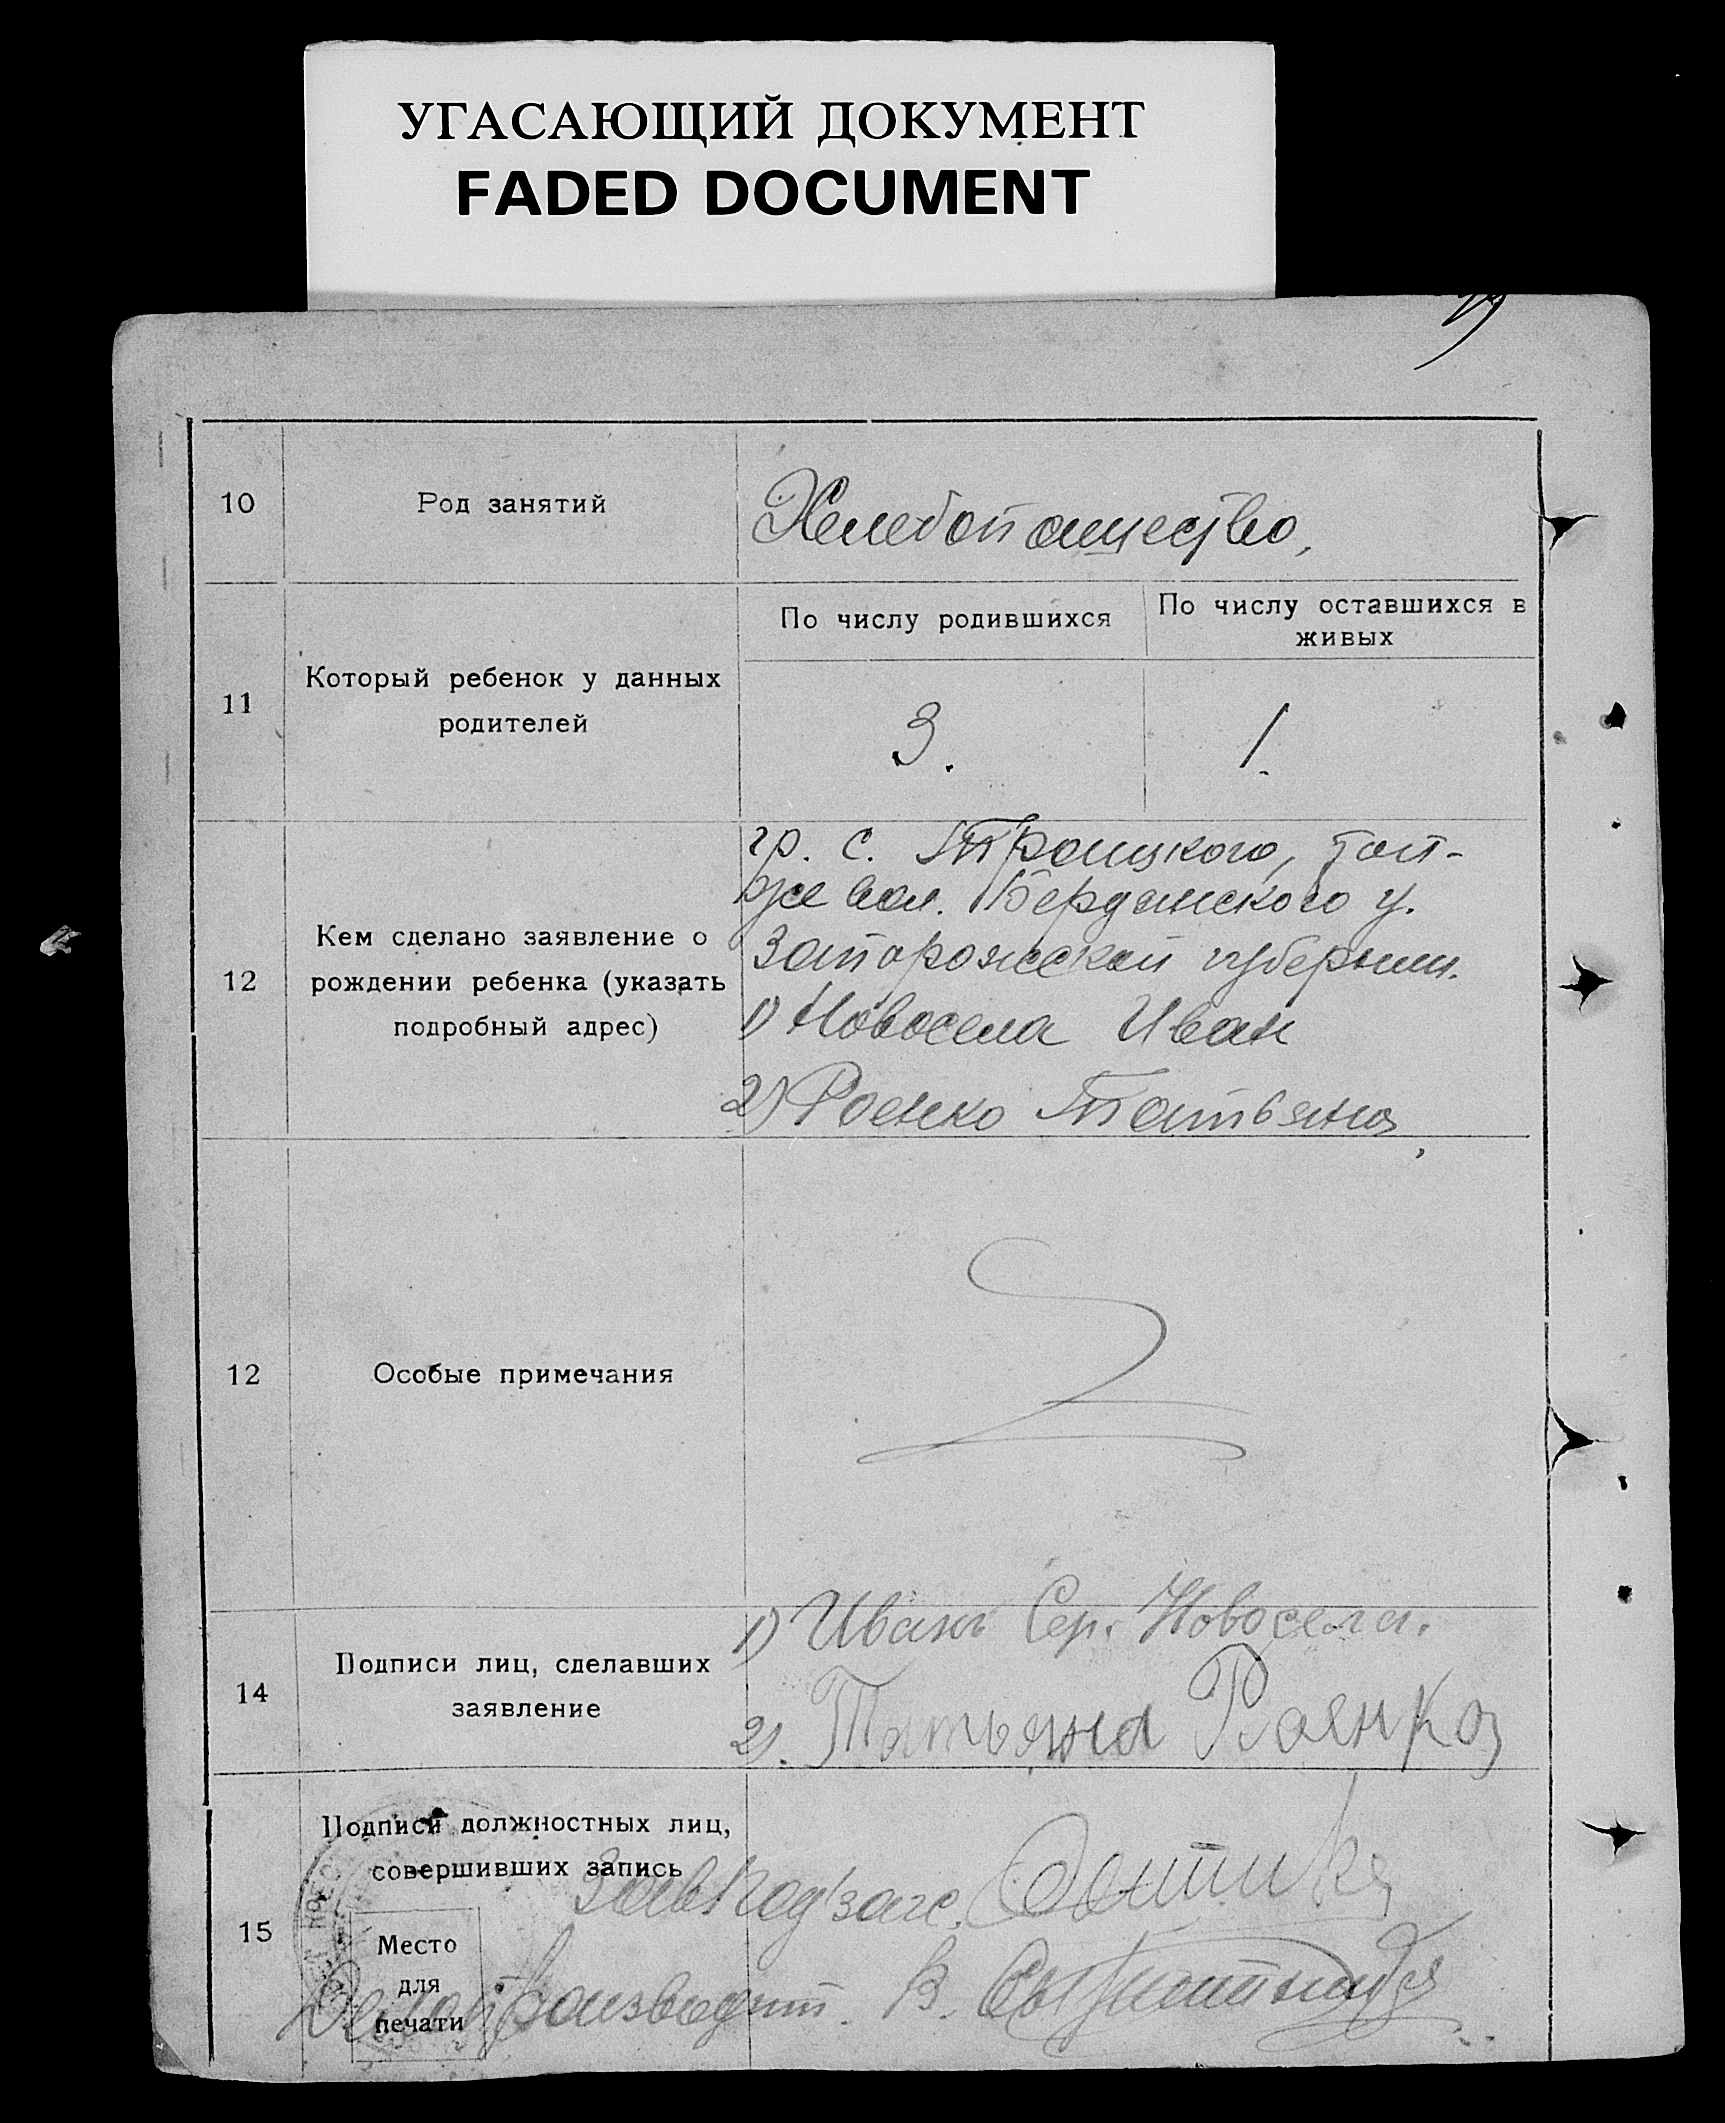 УГАСАЮЩИЙ ДОКУМЕНТ
FADED DOCUMENT
10
Род занятий
Хлебопашество,
11
Который ребенок у данных
родителей
По числу родившихся
По числу оставшихся в
живых
3.
1.
12
Кем сделано заявление о
рождении ребенка (указать
подробный адрес)
гр. с. Троицкого, той-
же вол. Бердянского у.
Запорожской губернии.
1) Новосела Иван
2) Роенко Татьяна
12
Особые примечания
14
Подписи лиц, сделавших
заявление
1) Иванъ Сер. Новосела.
2). Татьяна Роянко
15
Подписи должностных лиц,
совершивших запись
Завподзагс.
Место
для
печати
Делопроизводит. В.